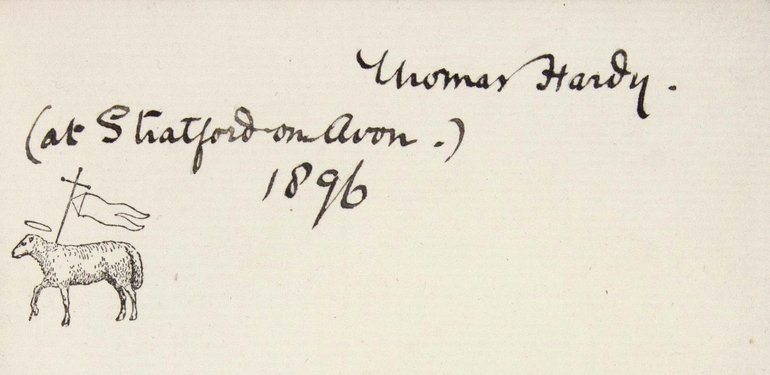 Thomas Hardy.
(at Stratford-on-Avon.)
1896